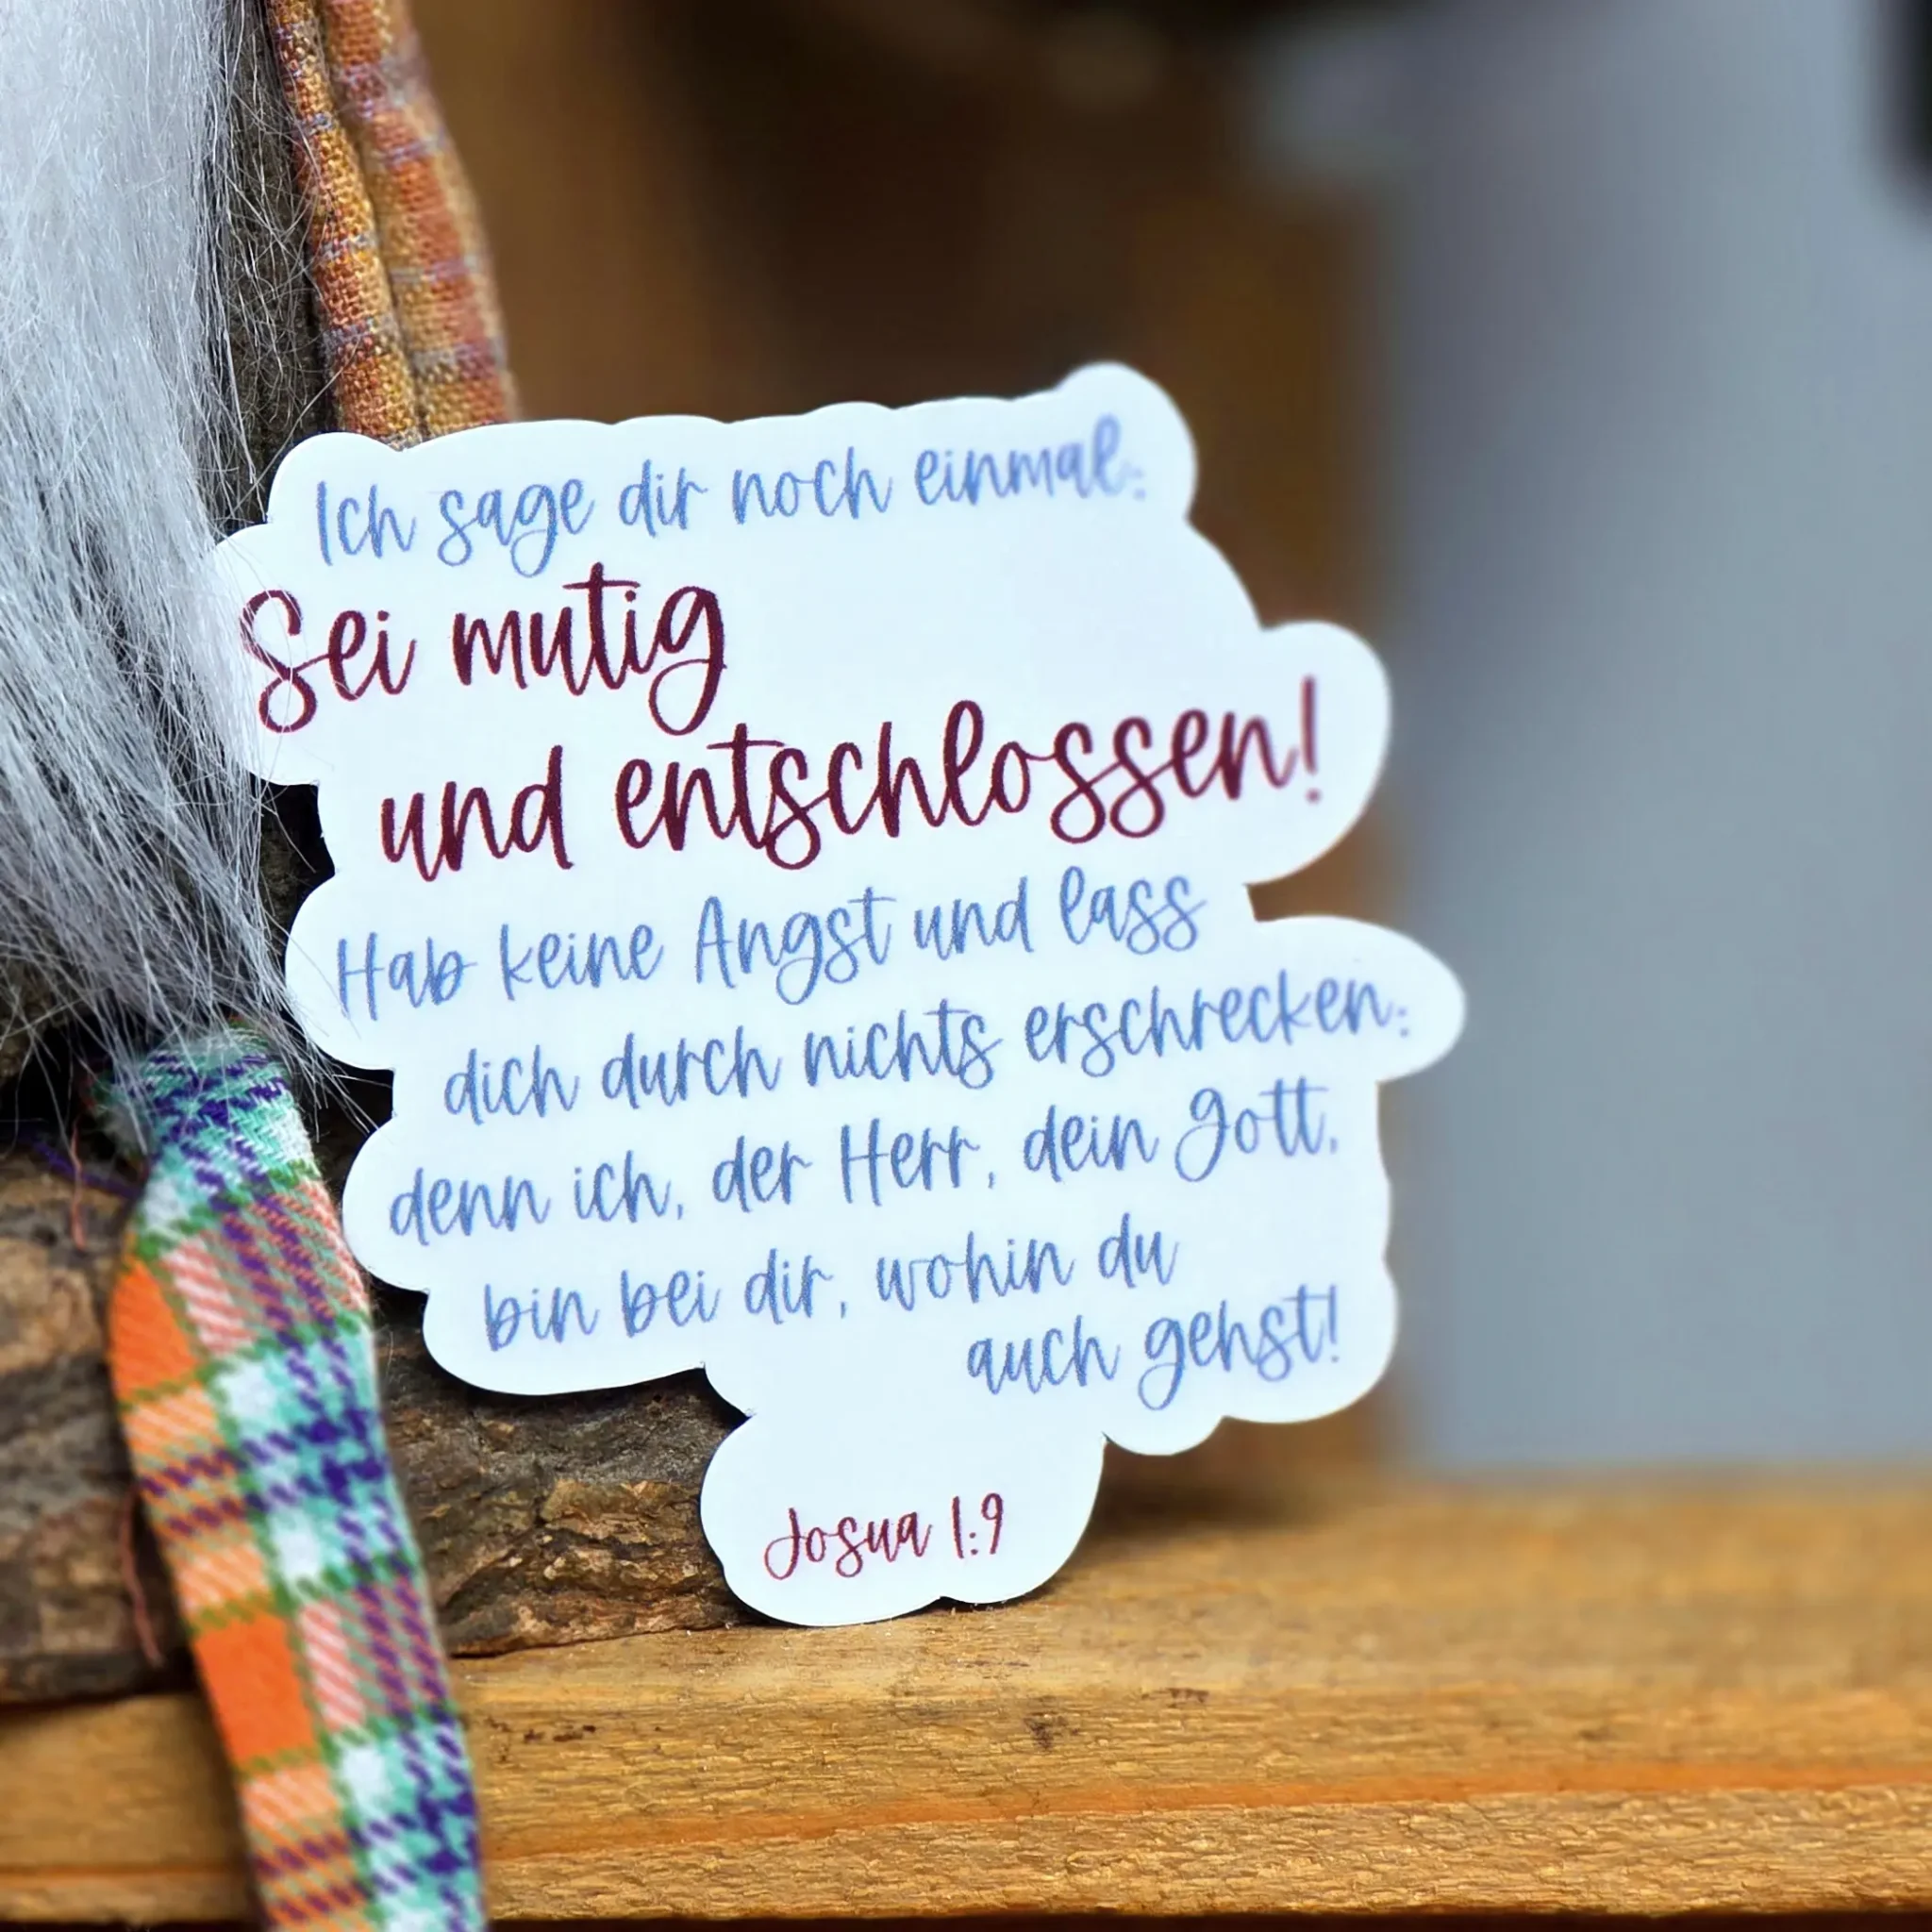 Ich sage dir noch einmal:
Sei mutig
und entschlossen!
Hab keine Angst und lass
dich durch nichts erschrecken;
denn ich, der Herr, dein Gott,
bin bei dir, wohin du
auch gehst!
Josua 1:9